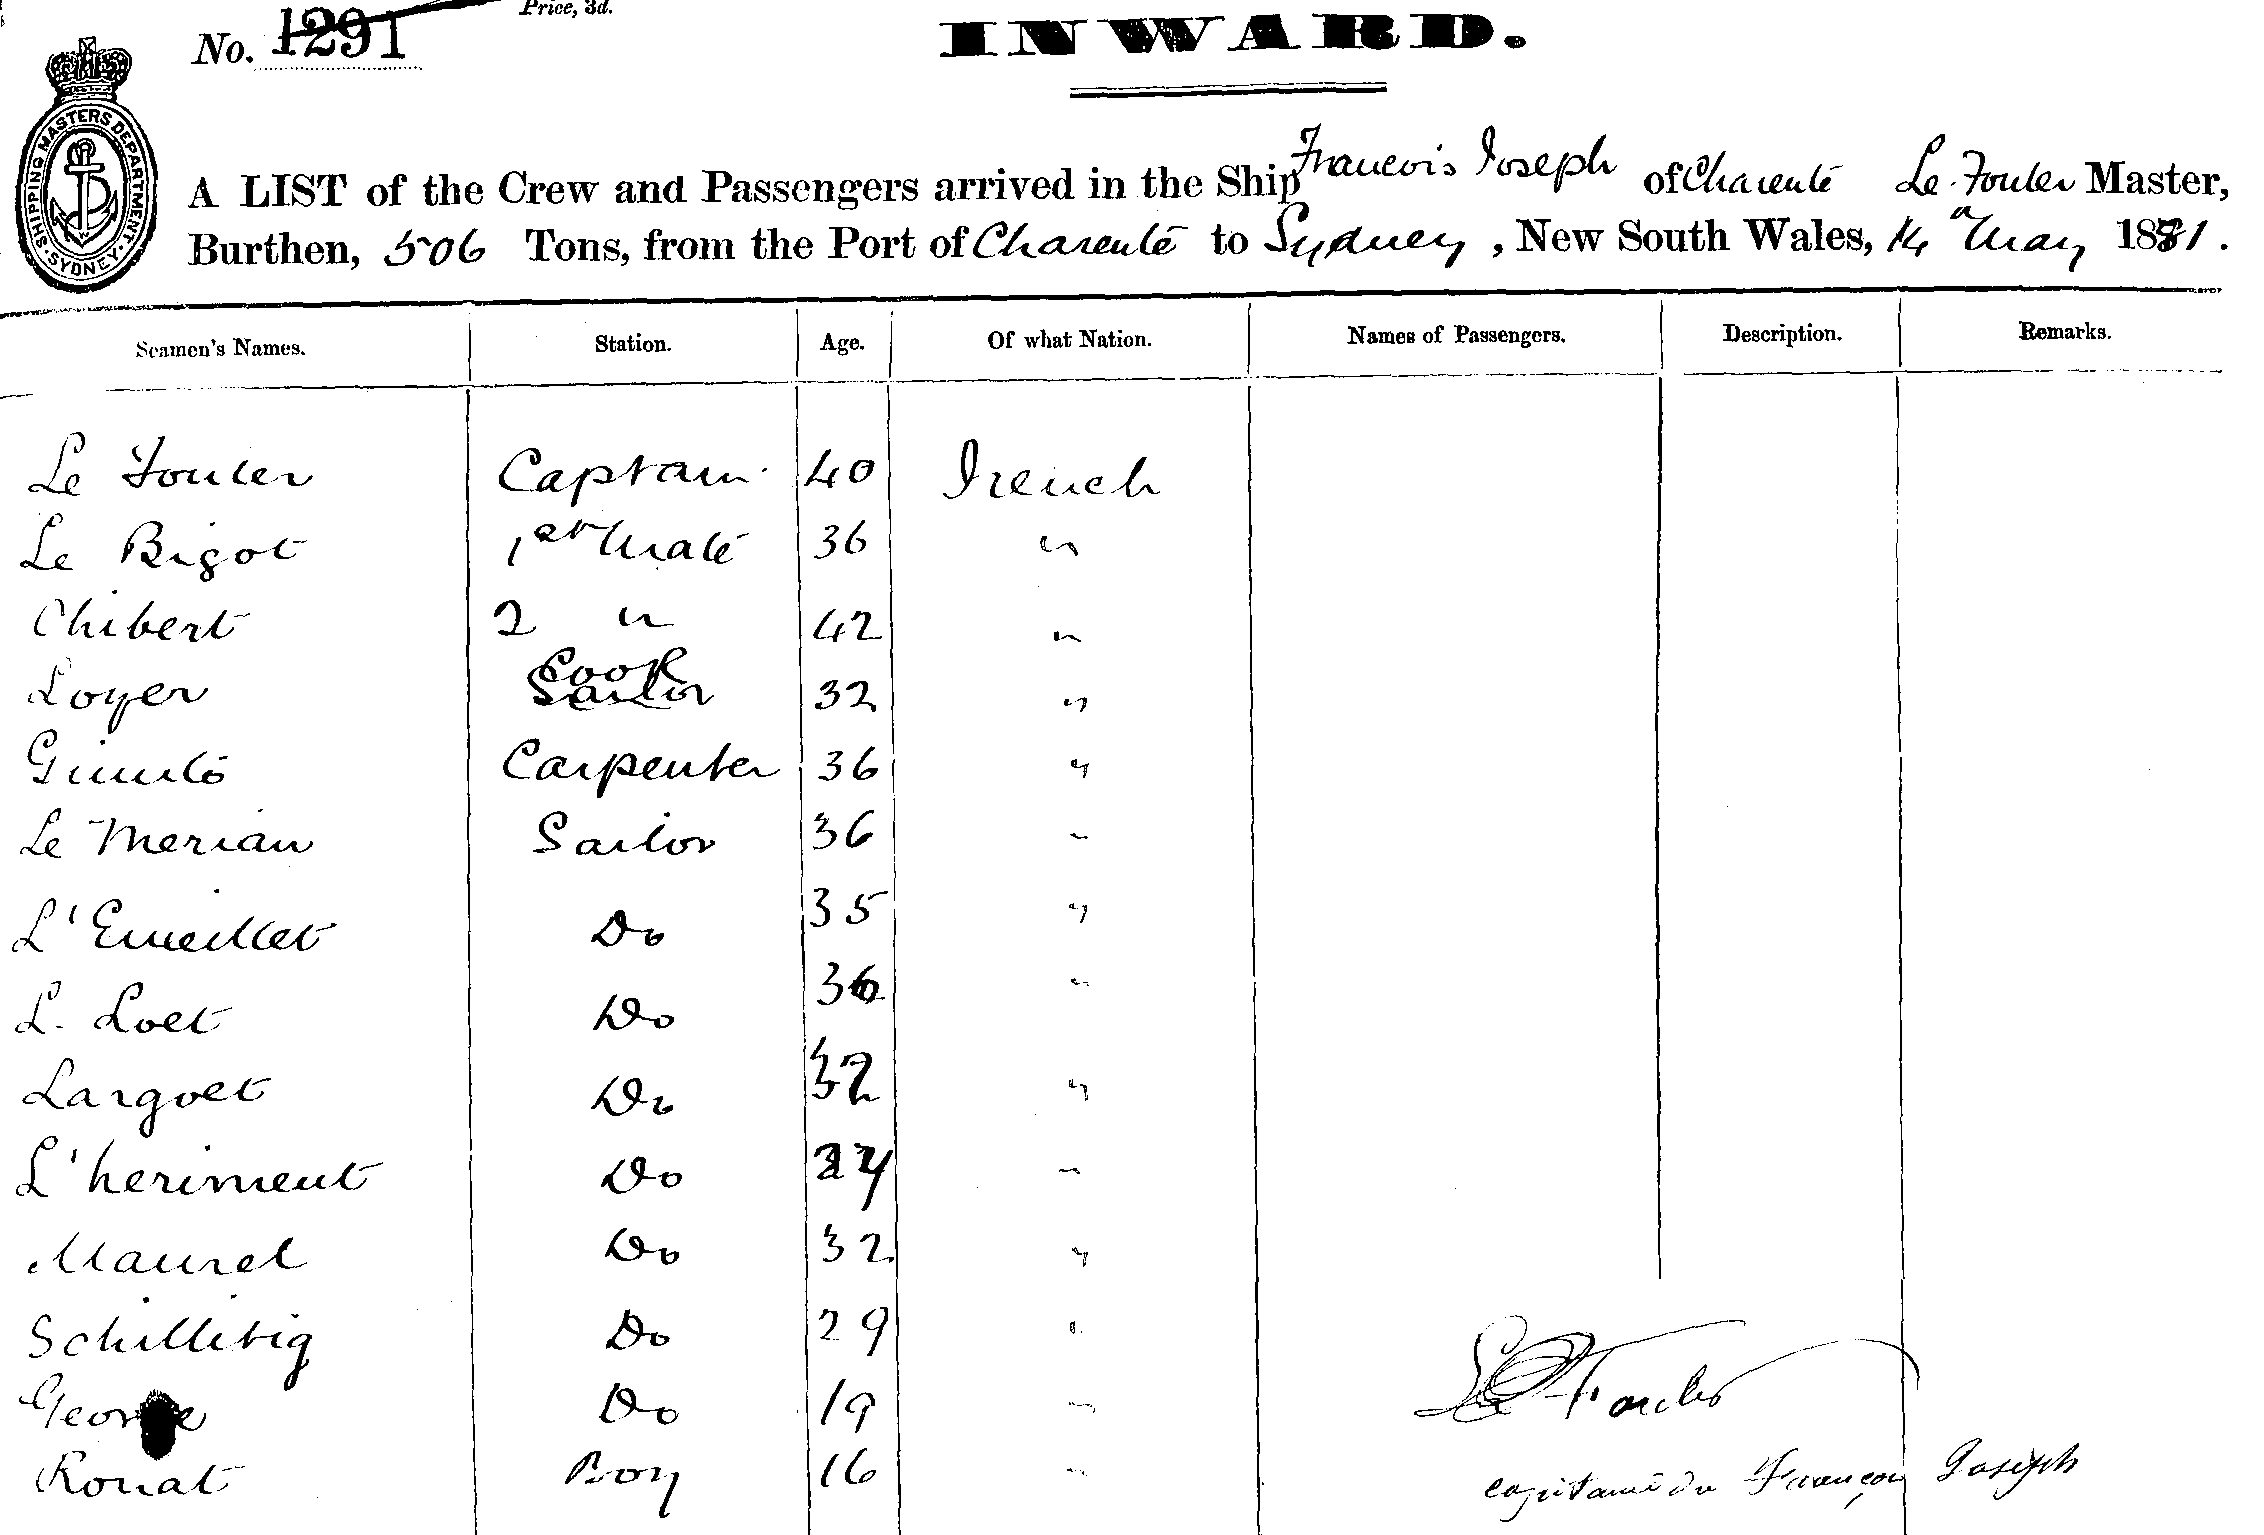 Price, 3d.
No. 1291
INWARD.
SHIPPING MASTERS DEPARTMENT. SYDNEY.
A LIST of the Crew and Passengers arrived in the Ship Francois Joseph of Charente Le Fouler Master,
Burthen, 506 Tons, from the Port of Charente to Sydney, New South Wales, 14th May 1881.
Seamen's Names. Station. Age. Of what Nation. Names of Passengers. Description. Remarks.
Le Fouler Captain 40 French
Le Bigot 1st Mate 36 "
Chibert 2 " 42 "
Loyer Cook Sailor 32 "
Carpenter 36 "
Le Merian Sailor 36 "
Do 35 "
L. Loet Do 36 "
Largoet Do 32 "
L'heriment Do "
Maurel Do 32 "
Schillitig Do 29 "
George Do 19 "
Rouat Boy 16 "
Le Fouler
capitaine du François Joseph